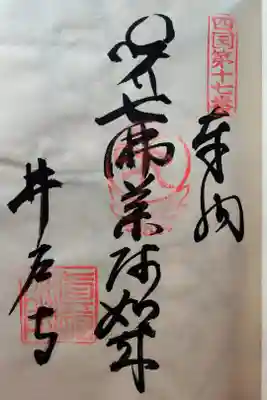 四国第十七番
奉納
七佛薬師如来
井戸寺